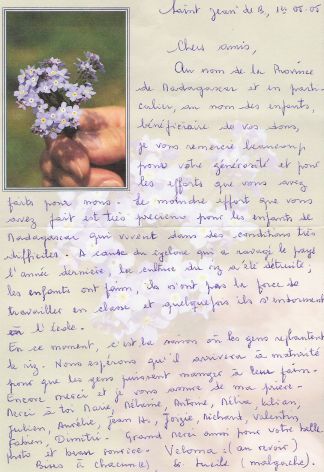 Saint Jean de B, 1er 06.05
Chers amis,
Au nom de la Province
de Madagascar et en parti-
culier, au nom des enfants,
bénéficiaire de vos dons,
je vous remercie beaucoup
pour votre générosité et pour
les efforts que vous avez
faits pour nous. Le moindre effort que vous
avez fait est très précieux pour les enfants de
Madagascar qui vivent dans des conditions très
difficiles. A cause du cyclone qui a ravagé le pays
l'année dernière, la culture du riz a été détruite ;
les enfants ont faim, ils n'ont pas la force de
travailler en classe et quelquefois ils s'endorment
à l'école.
En ce moment, c'est la saison où les gens replantent
le riz. Nous espérons qu'il arrivera à maturité
pour que les gens puissent manger à leur faim.
Encore merci et je vous assure de ma prière.
Merci à toi Antoine, Kilian,
Julien, Aurélie, Jean Ho, Richard, Valentin,
Fabien, Dimitri. Grand merci pour votre belle
et beau sourire. Veloma : (au revoir)
Bises à chacun(e) Sr Lucile (malgache).